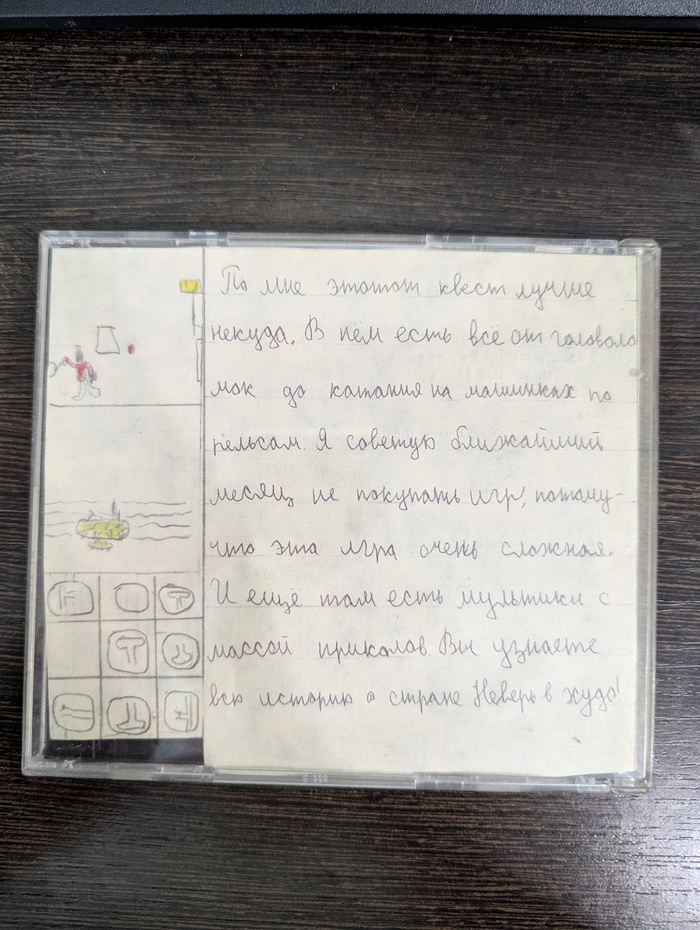 По мне этотот квест лучше
некуда. В нём есть всё от головоло
мок до катания на машинках по
рельсам. Я советую ближайший
месяц не покупать игр, потому-
что эта игра очень сложная.
И ещё там есть мультики с
массой приколов. Вы узнаете
всю историю о стране Неверь в худо!